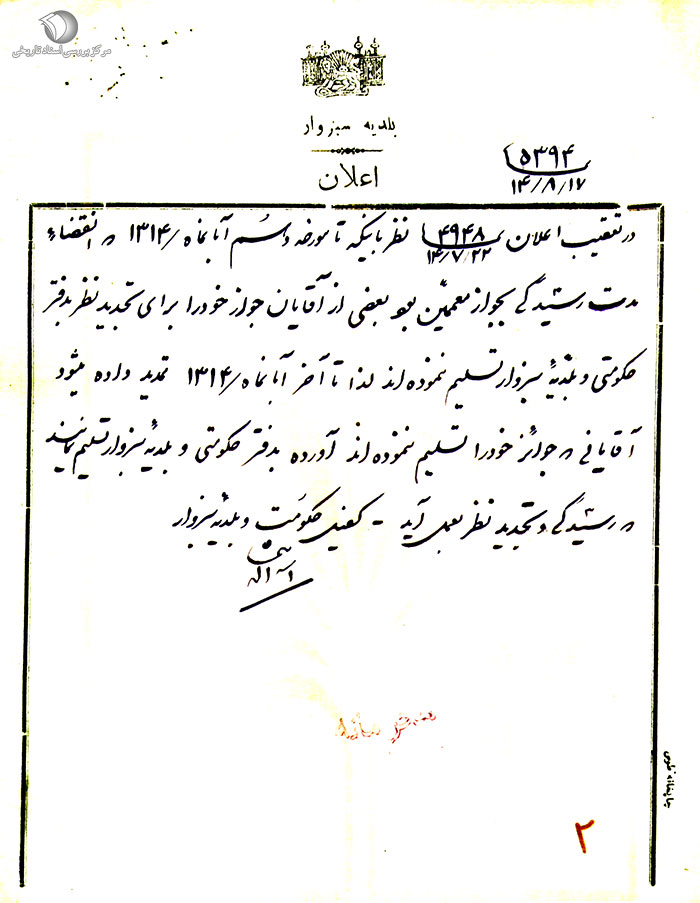 مرکز بررسی اسناد تاریخی
بلدیه سبزوار
اعلان
۵۳۹۴
۱۴/۸/۱۷
در تعقیب اعلان ۴۹۴۸ نظر باینکه تا مورخه دسم آبانماه/ ۱۳۱۴ که انقضاء
۱۴/۷/۲۲
مدت رسیدگی بجواز معممین بود بعضی از آقایان جواز خود را برای تجدید نظر بدفتر
حکومتی و بلدیهٔ سبزوار تسلیم ننموده اند لذا تا آخر آبانماه/ ۱۳۱۴ تمدید داده میشود
آقایانی که جوائز خود را تسلیم ننموده اند آورده بدفتر حکومتی و بلدیه سبزوار تسلیم نمایند
که رسیدگی و تجدید نظر بعمل آید - کفیل حکومت و بلدیه سبزوار
چاپخانه طوسی
۲